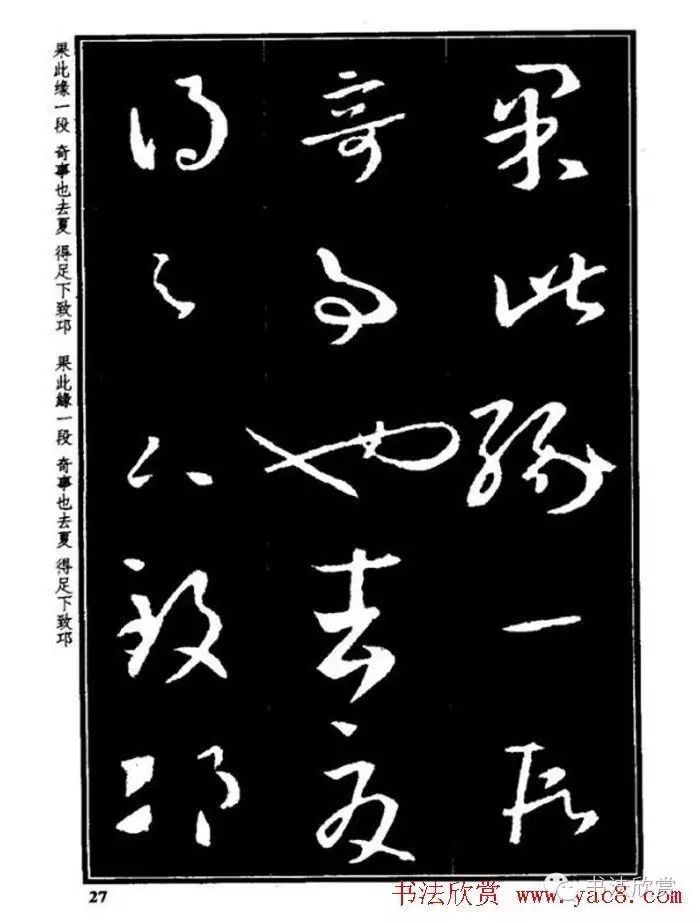 果此緣一段
奇事也去夏
得足下致邛
果此缘一段 奇事也去夏 得足下致邛
果此緣一段 奇事也去夏 得足下致邛
27
书法欣赏 www.yac8.com
书法欣赏